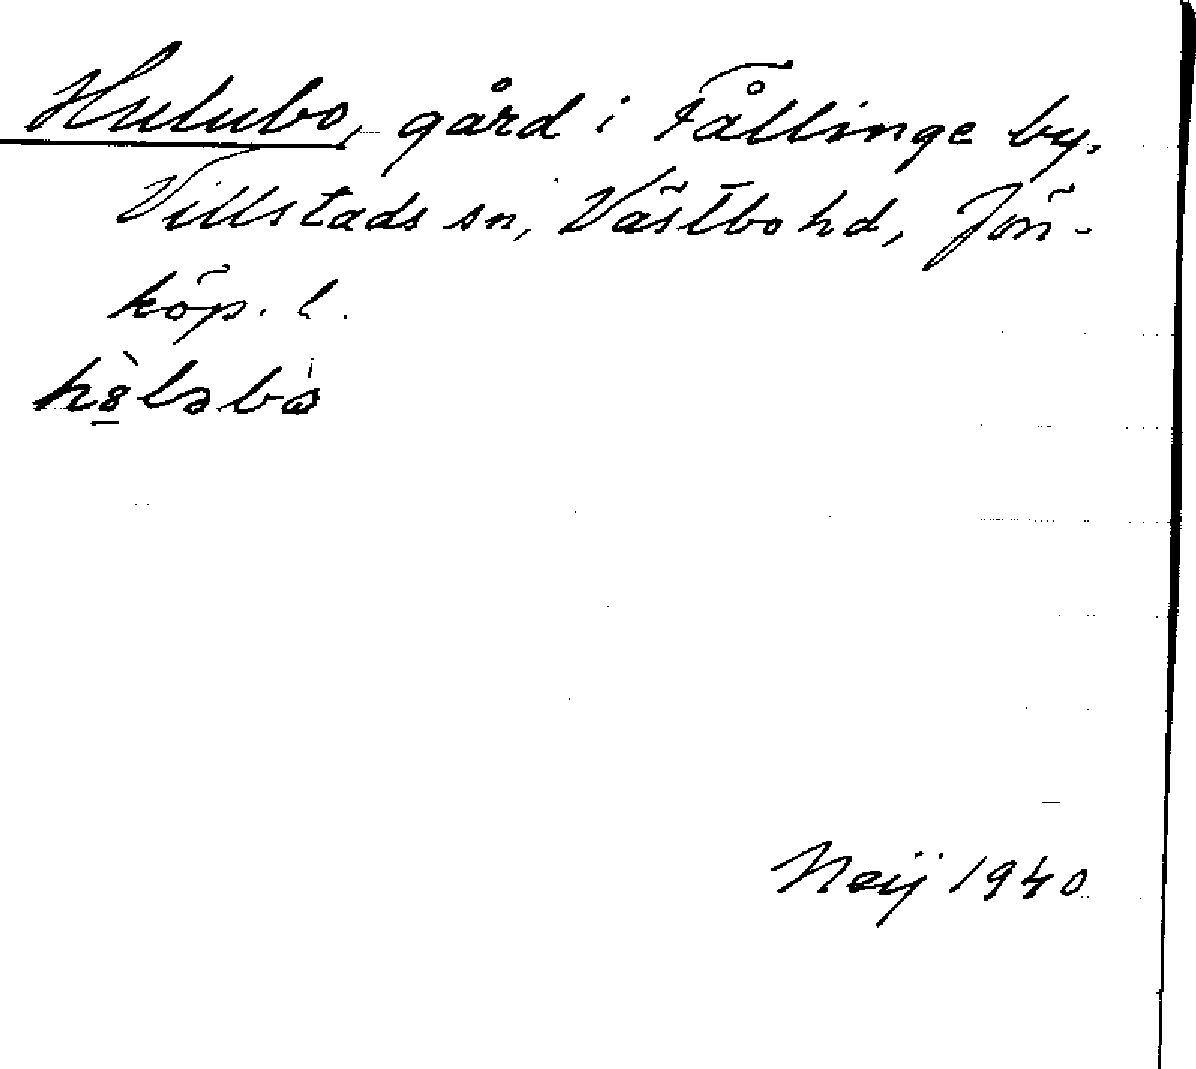 Hulubo, gård i Fållinge by,
Villstads sn, Västbo hd, Jön-
köp. l.
Neij 1940